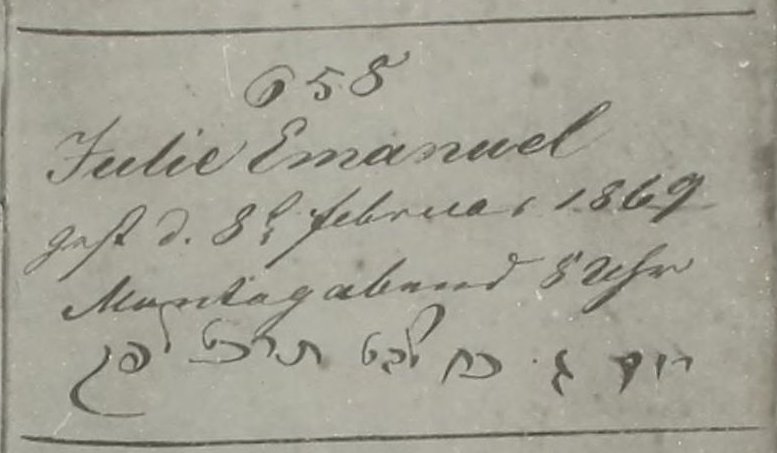 658
Julie Emanuel
gest d. 8t. februar 1869
Montagabend 8 Uhr
יום ג. כח שבט תרכט לפק